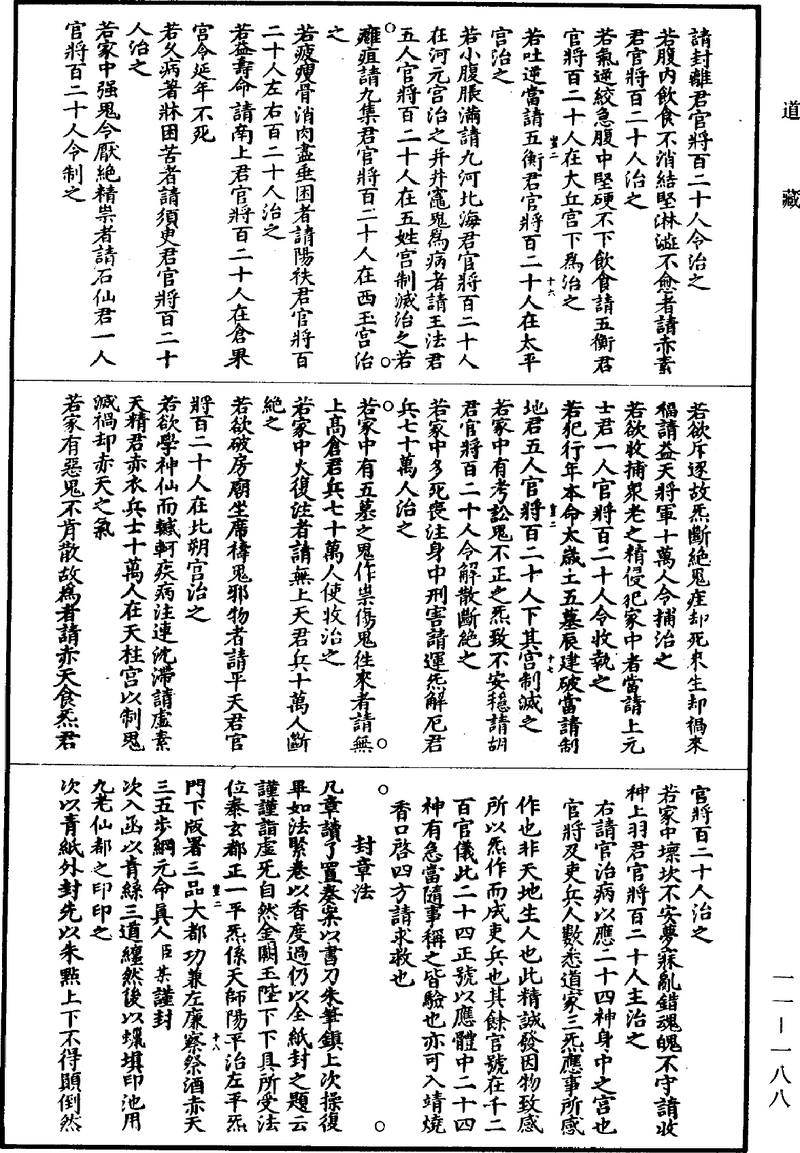 道藏
請封離君官將百二十人令治之
若腹內飲食不消結堅淋澁不愈者請赤素
君官將百二十人治之
若氣逆絞急腹中堅硬不下飲食請五衡君
官將百二十人在大丘宮下為治之
若吐逆當請五衡君官將百二十人在太平
宮治之
若小腹脹滿請九河北海君官將百二十人
在河元宮治之并井竈鬼為病者請王法君
五人官將百二十人在五姓宮制滅治之若
癰疽請九集君官將百二十人在西玉宮治
之
若疲瘦骨消肉盡垂困者請陽秩君官將百
二十人左右百二十人治之
若益壽命請南上君官將百二十人在倉果
宮令延年不死
若久病著牀困苦者請須臾君官將百二十
人治之
若家中强鬼令厭絕精祟者請石仙君一人
官將百二十人令制之
若欲斥逐故炁斷絕鬼疰却死來生却禍來
福請益天將軍十萬人令捕治之
若欲收捕衆老之精侵犯家中者當請上元
士君一人官將百二十人令收執之
若犯行年本命太歲土五墓辰建破當請制
地君五人官將百二十人下其宮制滅之
若家中有考訟鬼不正之炁致不安穩請胡
君官將百二十人令解散斷絕之
若家中多死喪注身中刑害請運炁解厄君
兵七十萬人治之
若家中有五墓之鬼作祟傷鬼徃來者請無
上高倉君兵七十萬人使收治之
若家中火復注者請無上天君兵十萬人斷
絕之
若欲破房廟坐席禱鬼邪物者請平天君官
將百二十人在北朔宮治之
若欲學神仙而轗軻疾病注連沈滯請虛素
天精君赤衣兵士十萬人在天柱宮以制鬼
滅禍却赤天之氣
若家有惡鬼不肯散故為者請赤天食炁君
官將百二十人治之
若家中壈坎不安夢寐亂錯魂魄不守請收
神上羽君官將百二十人主治之
右請官治病以應二十四神身中之宮也
官將及吏兵人數悉道家三炁應事所感
作也非天地生人也此精誠發因物致感
所以炁作而成吏兵也其餘官號在千二
百官儀此二十四正號以應體中二十四
神有急當隨事稱之皆驗也亦可入靖燒
香口啓四方請求救也
封章法
凡章讀了置奏案以書刀朱筆鎮上次操復
畢如法緊卷以香度過仍以全紙封之題云
謹謹詣虛无自然金闕玉陛下下具所受法
位泰玄都正一平炁係天師陽平治左平炁
門下版署三品大都功兼左廉察祭酒赤天
三五步綱元命真人臣某謹封
次入函以青絲三道纏然後以蠟填印池用
九老仙都之印印之
次以青紙外封先以朱點上下不得顛倒然
一一—一八八